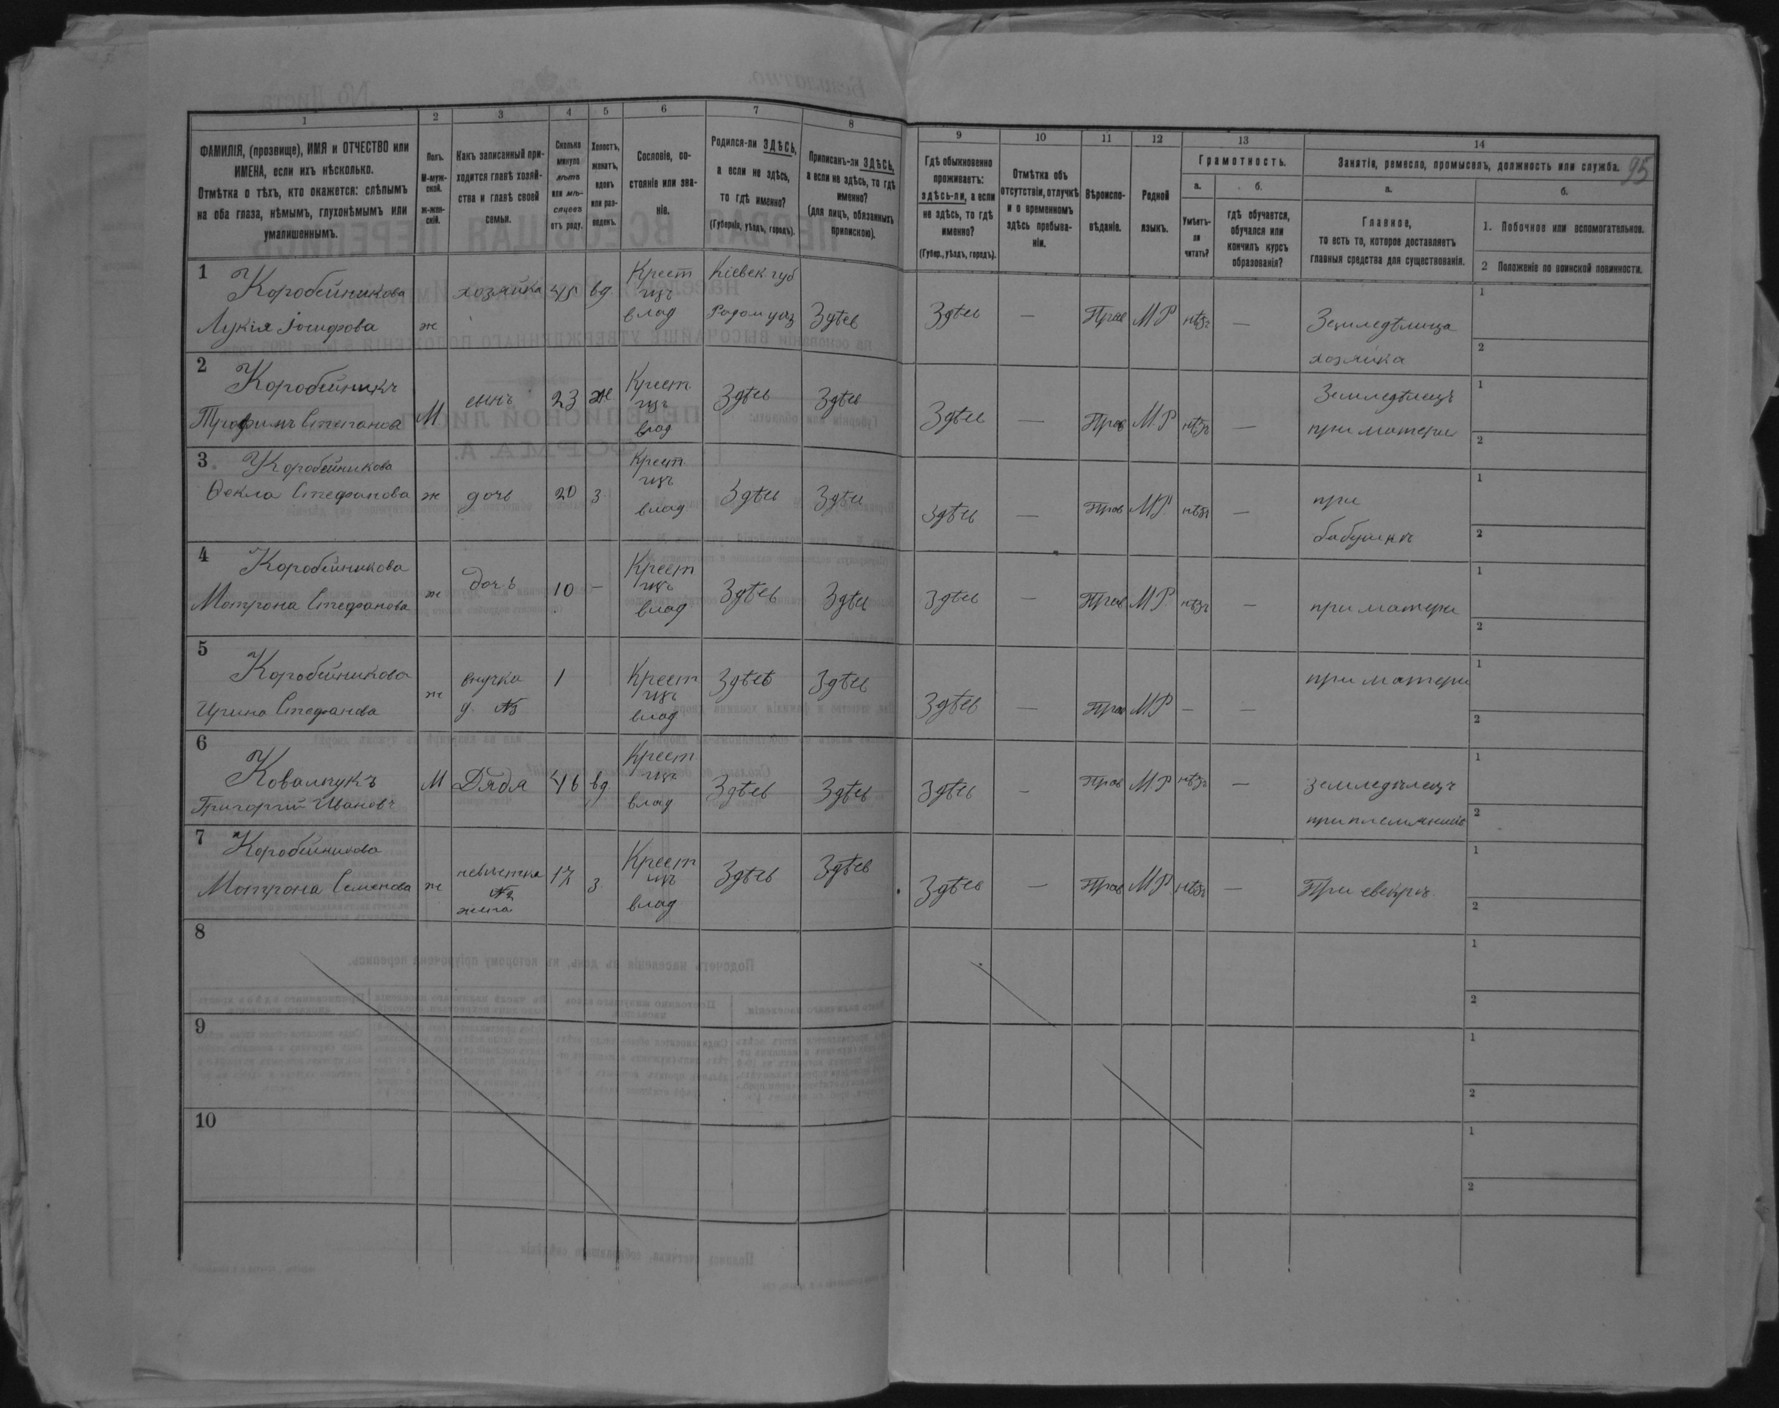 95
1 2 3 4 5 6 7 8 9 10 11 12 13 14
ФАМИЛІЯ, (прозвище), ИМЯ и ОТЧЕСТВО или
ИМЕНА, если ихъ нѣсколько.
Отмѣтка о тѣхъ, кто окажется: слѣпымъ
на оба глаза, нѣмымъ, глухонѣмымъ или
умалишеннымъ.
Полъ.
М-муж-
ской.
ж-жен-
скій.
Какъ записанный при-
ходится главѣ хозяй-
ства и главѣ своей
семьи.
Сколько
минуло
лѣтъ
или мѣ-
сяцевъ
отъ роду.
Холостъ,
женатъ,
вдовъ
или раз-
веденъ.
Сословіе, со-
стояніе или зва-
ніе.
Родился-ли ЗДѢСЬ,
а если не здѣсь,
то гдѣ именно?
(Губернія, уѣздъ, городъ).
Приписанъ-ли ЗДѢСЬ,
а если не здѣсь, то гдѣ
именно?
(для лицъ, обязанныхъ
припискою).
Гдѣ обыкновенно
проживаетъ:
здѣсь-ли, а если
не здѣсь, то гдѣ
именно?
(Губер., уѣздъ, городъ).
Отмѣтка объ
отсутствіи, отлучкѣ
и о временномъ
здѣсь пребыва-
ніи.
Вѣроиспо-
вѣданіе.
Родной
языкъ.
Грамотность.
а.
Умѣетъ-
ли
читать?
б.
гдѣ обучается,
обучался или
кончилъ курсъ
образованія?
Занятіе, ремесло, промыселъ, должность или служба.
а.
Главное,
то есть то, которое доставляетъ
главныя средства для существованія.
б.
1. Побочное или вспомогательное.
2 Положеніе по воинской повинности.
1
Коробейникова
Лукія Іосифова
ж хозяйка 45 вд
Крест
влад
Кіевск губ
Радом уѣз
Здѣсь Здѣсь — Прав МР нѣтъ —
Земледѣлица
хозяйка
1
2
2
Коробейникъ
Трофимъ Степановъ
М сынъ 23 ж
Крест
влад
Здѣсь Здѣсь Здѣсь — Прав МР нѣтъ —
Земледѣлецъ
при матери
1
2
3
Коробейникова
Ѳекла Стефанова
ж дочь 20 з
Крест
влад
Здѣсь Здѣсь Здѣсь — Прав МР нѣтъ —
при
бабушкѣ
1
2
4
Коробейникова
Мотрона Стефанова
ж дочь 10 —
Крест
влад
Здѣсь Здѣсь Здѣсь — Прав МР нѣтъ —
при матери
1
2
5
Коробейникова
Ирина Стефанова
ж внучка 1
Крест
влад
Здѣсь Здѣсь Здѣсь — Прав МР — —
при матери
1
2
6
Ковалчукъ
Григорій Ивановъ
М Дядя 46 вд
Крест
влад
Здѣсь Здѣсь Здѣсь — Прав МР нѣтъ —
земледѣлецъ
при племянникѣ
1
2
7
Коробейникова
Мотрона Семенова
ж невѣстка
№2
жена
17 з
Крест
влад
Здѣсь Здѣсь Здѣсь — Прав МР нѣтъ —
При свекрѣ
1
2
8
1
2
9
1
2
10
1
2